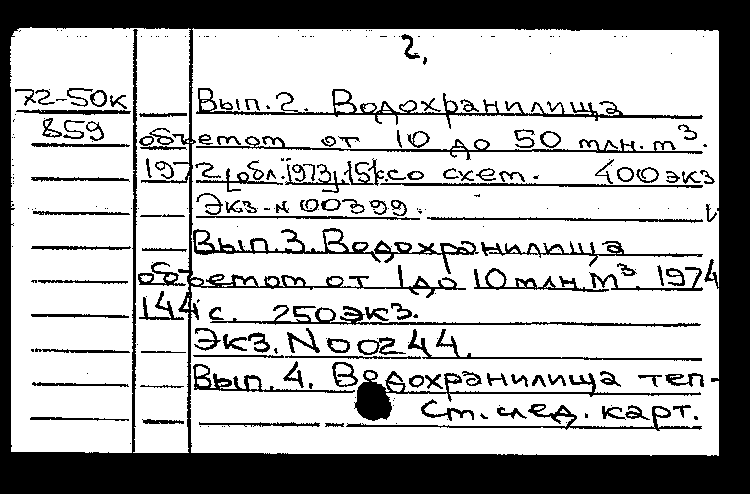 2.
72-50к Вып. 2. Водохранилища
859 объемом от 10 до 50 млн. м³.
1972 [обл. 1973]. 151с со схем. 400 экз
Экз-N 00399.
Вып. 3. Водохранилища
объемом от 1 до 10 млн. м³. 1974
144 с. 250 экз.
Экз. N 00244.
Вып. 4. Водохранилища теп-
См. след. карт.